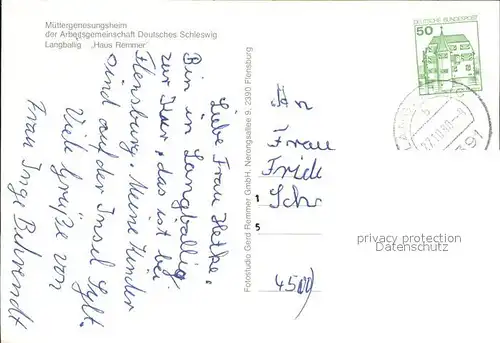 Müttergenesungsheim
der Arbeitsgemeinschaft Deutsches Schleswig
Langballig „Haus Remmer"
Liebe Frau Hetke.
Bin in Langballig
zur Kur, das ist bei
Flensburg. Meine Kinder
sind auf der Insel Sylt.
Viele Grüße von
Frau Inge Behrendt
Fotostudio Gerd Remmer GmbH, Nerongsallee 9, 2390 Flensburg
DEUTSCHE BUNDESPOST
50
27.10.80-9
2391
An
Frau
Fride
Sch
1
5
4500
privacy protection
DATENSCHUTZ